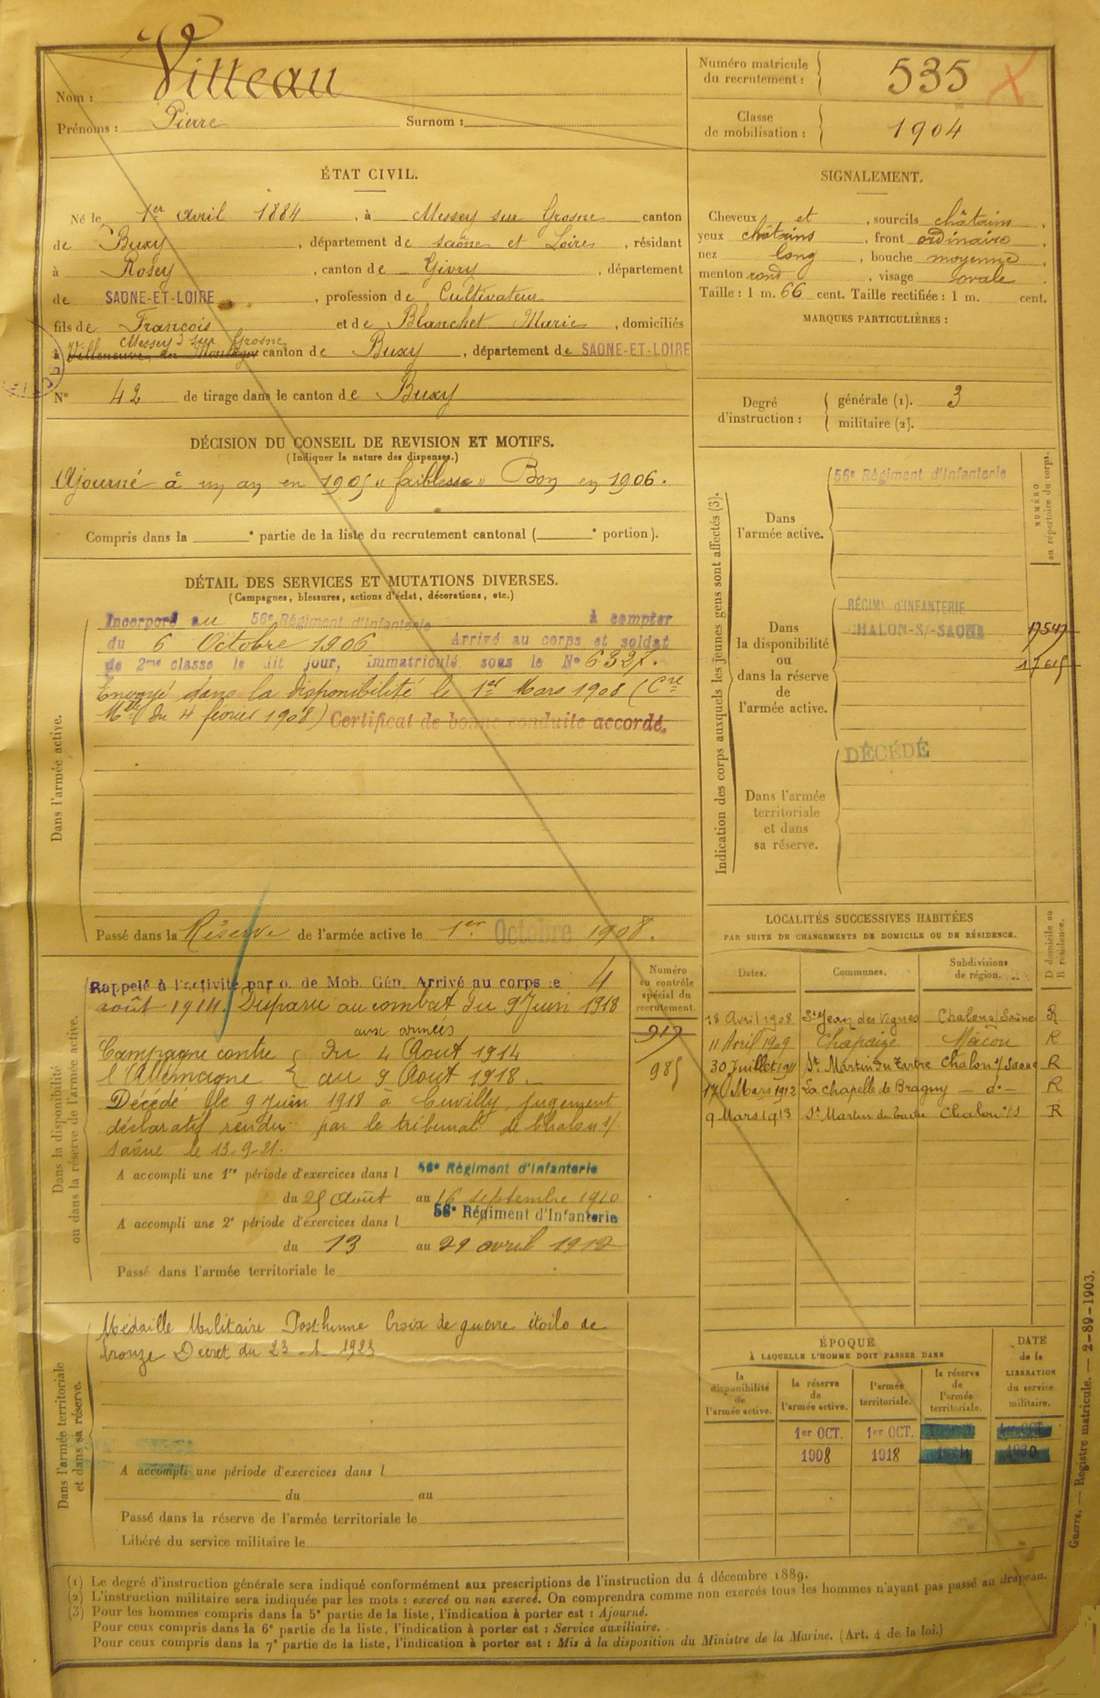 Nom : Vitteau
Prénoms : Pierre Surnom :
Numéro matricule du recrutement : 535 X
Classe de mobilisation : 1904
ÉTAT CIVIL.
Né le 1er avril 1884, à Messey sur Grosne canton
de Buxy, département de Saône et Loire, résidant
à Rosey, canton de Givry, département
de SAONE-ET-LOIRE, profession de Cultivateur
fils de François et de Blanchet Marie, domiciliés
Messey sur Grosne
à canton de Buxy, département de SAONE-ET-LOIRE
N° 42 de tirage dans le canton de Buxy
SIGNALEMENT.
Cheveux et , sourcils châtains,
yeux châtains, front ordinaire,
nez long, bouche moyenne,
menton rond, visage ovale.
Taille : 1 m. 66 cent. Taille rectifiée : 1 m. cent.
MARQUES PARTICULIÈRES :
Degré d'instruction : générale (1). 3
militaire (2).
DÉCISION DU CONSEIL DE REVISION ET MOTIFS.
(Indiquer la nature des dispenses.)
Ajourné à un an en 1905 "faiblesse" Bon en 1906.
Compris dans la ° partie de la liste du recrutement cantonal ( ° portion).
DÉTAIL DES SERVICES ET MUTATIONS DIVERSES.
(Campagnes, blessures, actions d'éclat, décorations, etc.)
Dans l'armée active.
Incorporé au 56e Régiment d'Infanterie à compter
du 6 Octobre 1906 Arrivé au corps et soldat
de 2me classe le dit jour, immatriculé sous le N° 6327.
Envoyé dans la disponibilité le 1er Mars 1908 (Cre
Mlle du 4 février 1908) Certificat de bonne conduite accordé.
Passé dans la Réserve de l'armée active le 1er Octobre 1908.
Indication des corps auxquels les jeunes gens sont affectés (3).
NUMÉRO au répertoire du corps.
Dans l'armée active.
56e Régiment d'Infanterie
Dans la disponibilité ou dans la réserve de l'armée active.
RÉGIMt D'INFANTERIE
CHALON-S/-SAONE
17547
17615
Dans l'armée territoriale et dans sa réserve.
DÉCÉDÉ
Dans la disponibilité ou dans la réserve de l'armée active.
Numéro au contrôle spécial du recrutement.
917
985
Rappelé à l'activité par o. de Mob. Gén. Arrivé au corps le 4
août 1914. Disparu au combat du 9 Juin 1918
aux armées
Campagne contre l'Allemagne { du 4 Août 1914
au 9 Août 1918.
Décédé le 9 Juin 1918 à Cuvilly, jugement
déclaratif rendu par le tribunal de Chalon s/
Saône le 13-9-21.
A accompli une 1re période d'exercices dans l 56e Régiment d'Infanterie
du 25 Août au 16 septembre 1910
A accompli une 2e période d'exercices dans l 56e Régiment d'Infanterie
du 13 au 29 avril 1912
Passé dans l'armée territoriale le
LOCALITÉS SUCCESSIVES HABITÉES
PAR SUITE DE CHANGEMENTS DE DOMICILE OU DE RÉSIDENCE.
Dates. Communes. Subdivisions de région. D domicile ou R résidence.
18 Avril 1908 St Jean des Vignes Chalon s/Saône R
11 Avril 1909 Chapaize Mâcon R
30 Juillet 1911 St Martin du Tertre Chalon s/Saône R
17 Mars 1912 La chapelle de Bragny — do — R
9 Mars 1913 St Martin du Tertre Chalon s/S R
Dans l'armée territoriale et dans sa réserve.
Médaille Militaire Posthume Croix de guerre étoile de
bronze Décret du 23 1923
A accompli une période d'exercices dans l
du au
Passé dans la réserve de l'armée territoriale le
Libéré du service militaire le
ÉPOQUE
À LAQUELLE L'HOMME DOIT PASSER DANS
la disponibilité de l'armée active. la réserve de l'armée active. l'armée territoriale. la réserve de l'armée territoriale.
DATE de la LIBÉRATION du service militaire.
1er OCT. 1er OCT.
1908 1918
Guerre. — Registre matricule. — 2-89-1903.
(1) Le degré d'instruction générale sera indiqué conformément aux prescriptions de l'instruction du 4 décembre 1889.
(2) L'instruction militaire sera indiquée par les mots : exercé ou non exercé. On comprendra comme non exercés tous les hommes n'ayant pas passé au drapeau.
(3) Pour les hommes compris dans la 5e partie de la liste, l'indication à porter est : Ajourné.
Pour ceux compris dans la 6e partie de la liste, l'indication à porter est : Service auxiliaire.
Pour ceux compris dans la 7e partie de la liste, l'indication à porter est : Mis à la disposition du Ministre de la Marine. (Art. 4 de la loi.)